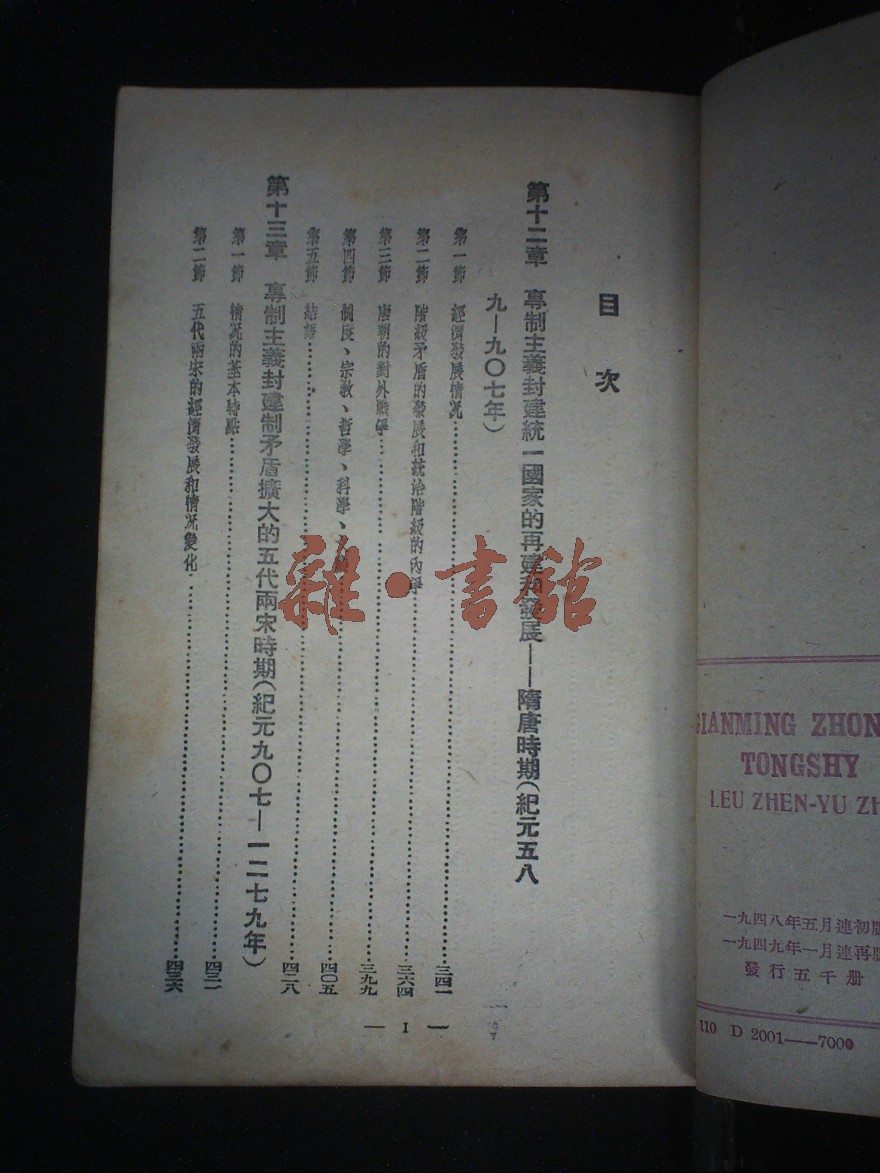 目次
第十二章　專制主義封建統一國家的再建和發展——隋唐時期(紀元五八
九—九〇七年)
第一節　經濟發展情況……三四一
第二節　階級矛盾的發展和統治階級的內爭……三六四
第三節　唐朝的對外戰爭……三九九
第四節　制度、宗教、哲學、科學、……四〇五
第五節　結語……四二八
第十三章　專制主義封建制矛盾擴大的五代兩宋時期(紀元九〇七—一二七九年)
第一節　情況的基本特點……四三一
第二節　五代兩宋的經濟發展和情況變化……四三六
— I —
雜·書館
GIANMING ZHON
TONGSHY
LEU ZHEN-YU ZH
一九四八年五月連初版
一九四九年一月連再版
發行五千册
110 D 2001——7000